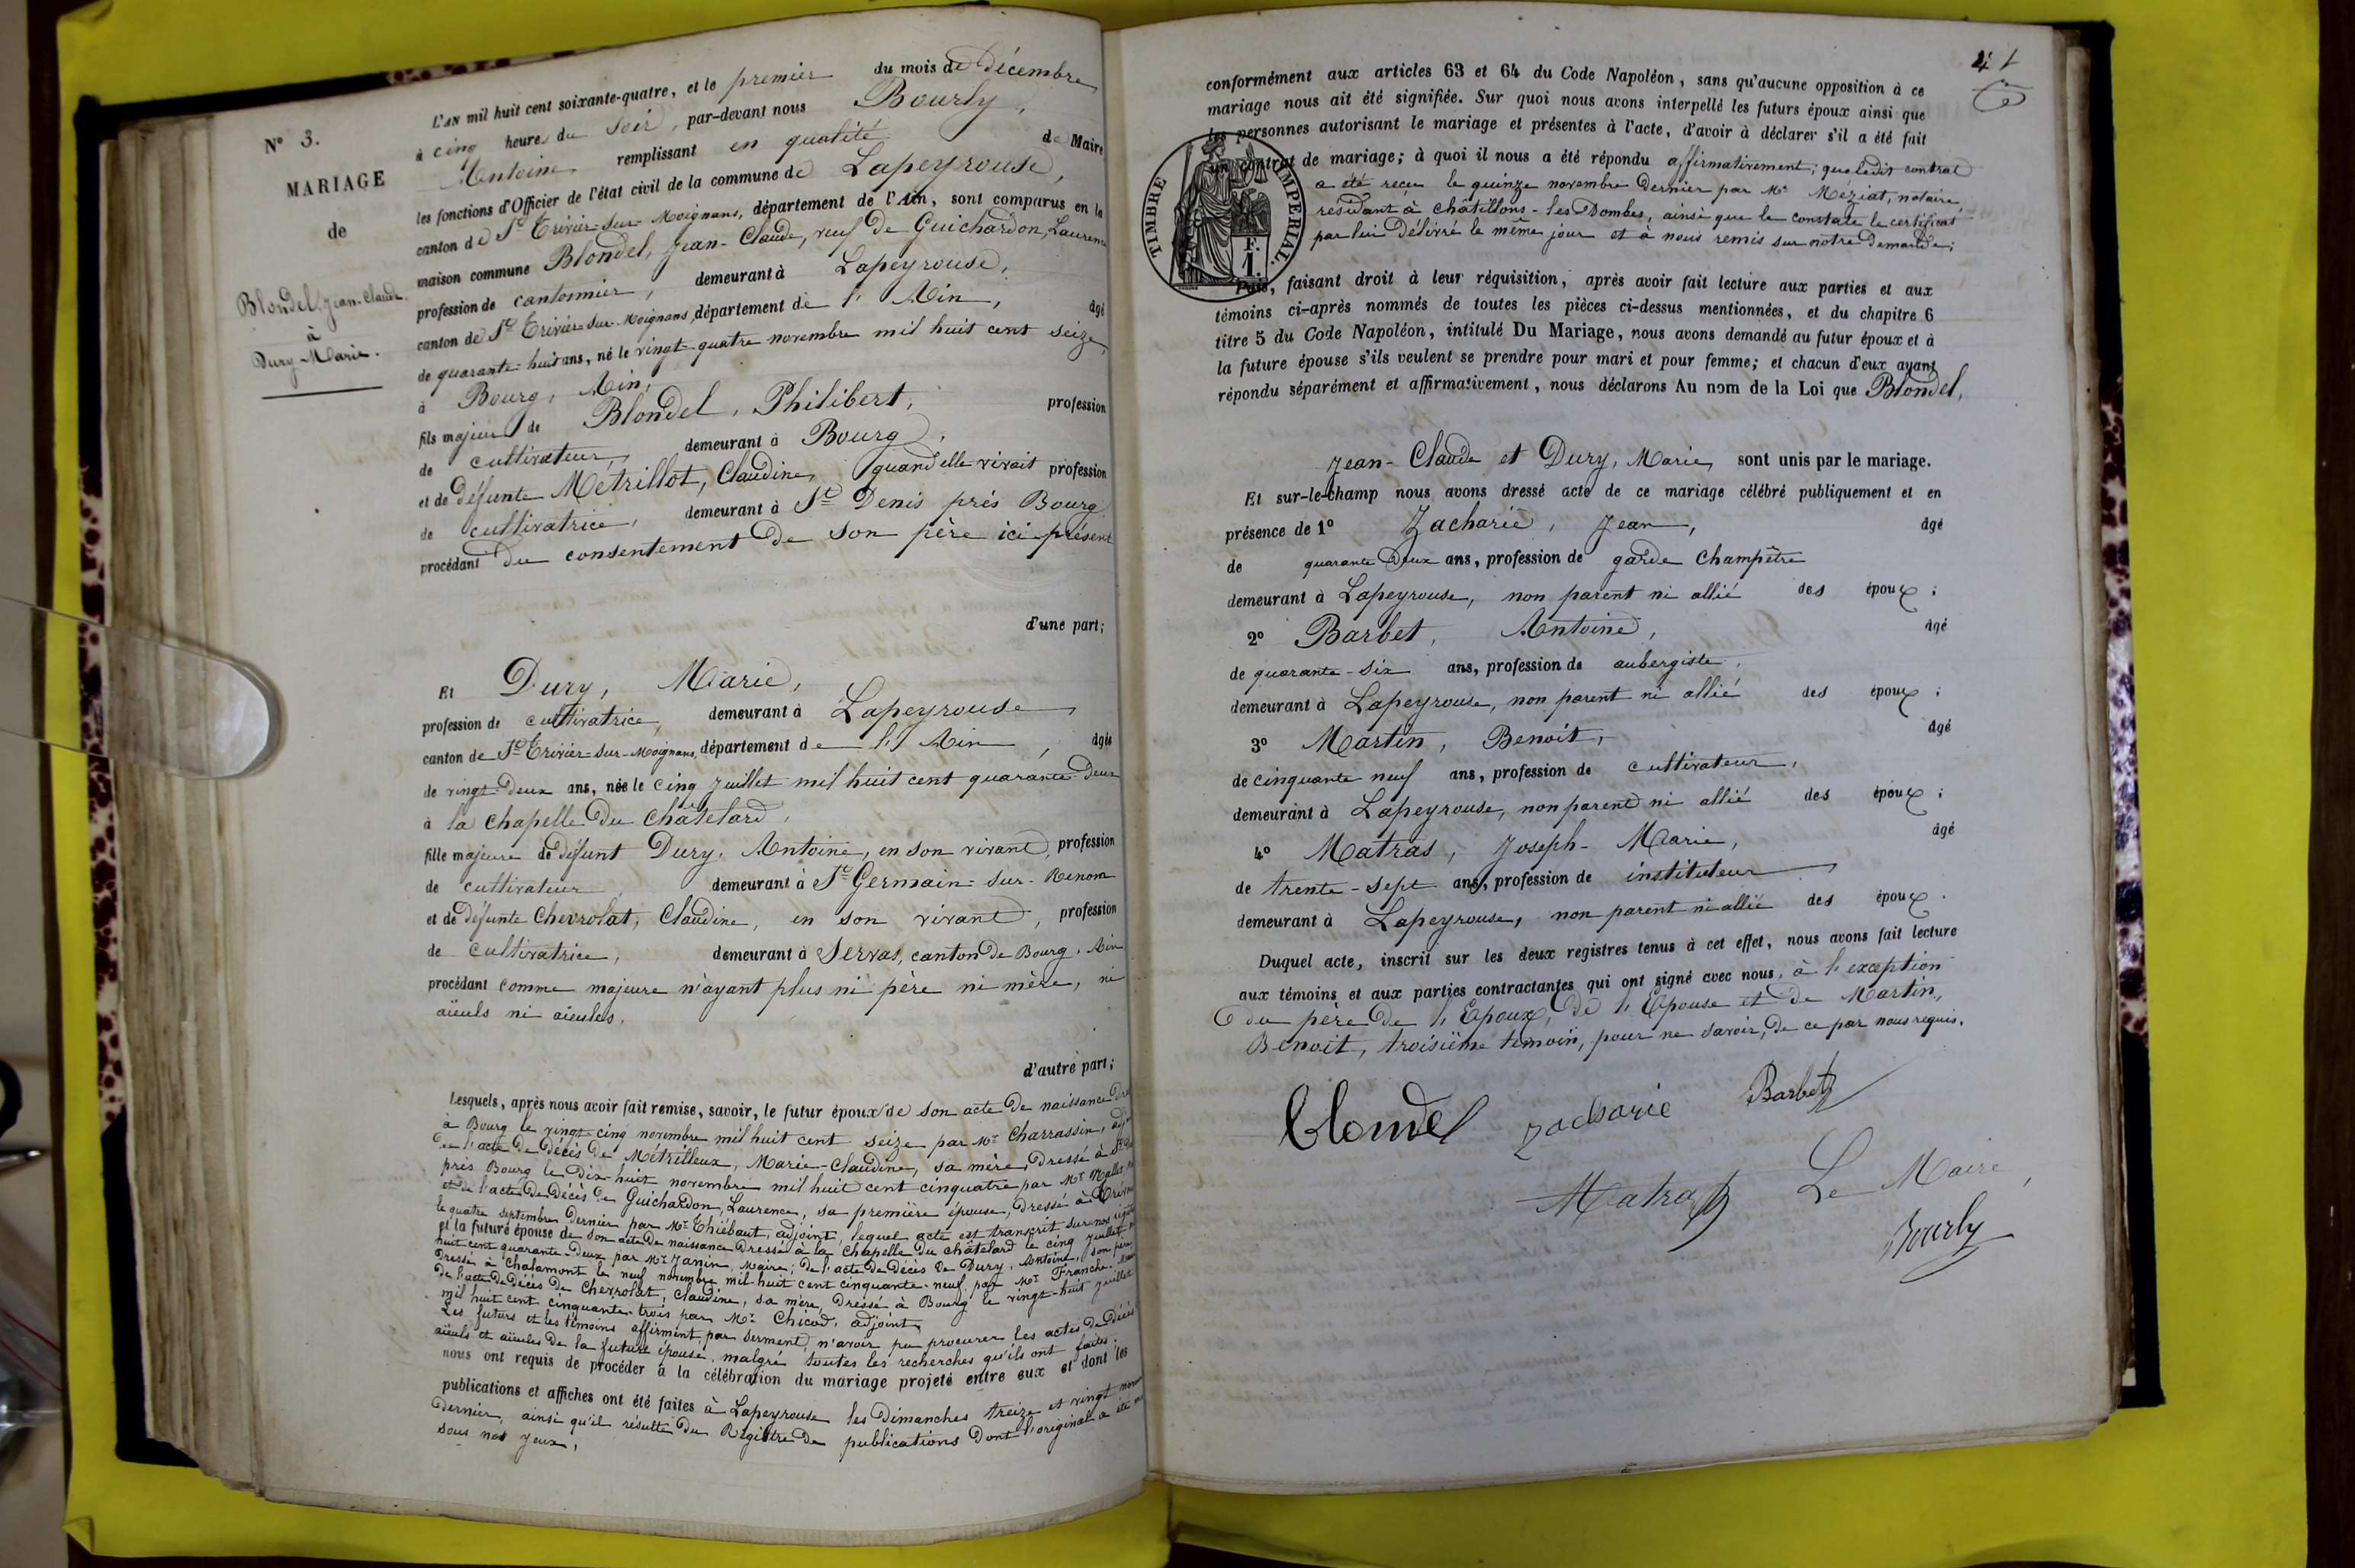 N° 3.
MARIAGE
de
Blondel, Jean-Claude
à
Dury Marie.
L'AN mil huit cent soixante-quatre, et le premier du mois de Décembre
à cinq heures du Soir, par-devant nous Bourly,
Antoine remplissant en qualité de Maire
les fonctions d'Officier de l'état civil de la commune de Lapeyrouse,
canton de St Trivier-sur-Moignans, département de l'Ain, sont comparus en la
maison commune Blondel, Jean-Claude, veuf de Guichardon, Laurence
profession de cantonnier, demeurant à Lapeyrouse,
canton de St Trivier-sur-Moignans, département de l'Ain, âgé
de quarante-huit ans, né le vingt-quatre novembre mil huit cent seize,
à Bourg, Ain,
fils majeur de Blondel, Philibert, profession
de cultivateur, demeurant à Bourg,
et de défunte Métrillot, Claudine, quand elle vivait profession
de cultivatrice, demeurant à St Denis près Bourg
procédant du consentement de son père ici présent
d'une part;
Et Dury, Marie,
profession de cultivatrice, demeurant à Lapeyrouse,
canton de St Trivier-sur-Moignans, département de l'Ain, âgée
de vingt-deux ans, née le cinq Juillet mil huit cent quarante-deux
à la Chapelle du Châtelard,
fille majeure de défunt Dury, Antoine, en son vivant, profession
de cultivateur, demeurant à St Germain-sur-Renom
et de défunte Chevrolat, Claudine, en son vivant, profession
de cultivatrice, demeurant à Servas, canton de Bourg, Ain
procédant comme majeure n'ayant plus ni père ni mère, ni
aïeuls ni aïeules.
d'autre part;
Lesquels, après nous avoir fait remise, savoir, le futur époux de son acte de naissance
à Bourg le vingt-cinq novembre mil huit cent seize par Mr Charrassin,
de l'acte de décès de Métrilleux, Marie-Claudine, sa mère, dressé à St
près Bourg le dix-huit novembre mil huit cent cinquante par Mr Mallet
et de l'acte de décès de Guichardon, Laurence, sa première épouse, dressé à
le quatre septembre dernier par Mr Thiébaut, adjoint, lequel acte est transcrit sur nos
et la future épouse de son acte de naissance dressé à la Chapelle du châtelard le cinq Juillet
huit cent quarante-deux par Mr Janin, Maire; de l'acte de décès de Dury, Antoine, son père,
dressé à Chalamont le neuf novembre mil huit cent cinquante-neuf par Mr Franche
de l'acte de décès de Chevrolat, Claudine, sa mère, dressé à Bourg le vingt-huit juillet
mil huit cent cinquante-trois par Mr Chicod, adjoint.
Les futurs et les témoins affirment, par serment, n'avoir pu procurer les actes de décès
aïeuls et aïeules de la future épouse, malgré toutes les recherches qu'ils ont faites;
nous ont requis de procéder à la célébration du mariage projeté entre eux et dont les
publications et affiches ont été faites à Lapeyrouse les Dimanches treize et vingt
dernier, ainsi qu'il résulte du Registre de publications dont l'original a été
sous nos yeux,
41
conformément aux articles 63 et 64 du Code Napoléon, sans qu'aucune opposition à ce
mariage nous ait été signifiée. Sur quoi nous avons interpellé les futurs époux ainsi que
les personnes autorisant le mariage et présentes à l'acte, d'avoir à déclarer s'il a été fait
un contrat de mariage; à quoi il nous a été répondu affirmativement; que ledit contrat
a été recu le quinze novembre dernier par Me Méziat, notaire,
résidant à Châtillons-les-Dombes, ainsi que le constate le certificat
par lui délivré le même jour et à nous remis sur notre demande;
TIMBRE IMPERIAL.
F.
1.
Puis, faisant droit à leur réquisition, après avoir fait lecture aux parties et aux
témoins ci-après nommés de toutes les pièces ci-dessus mentionnées, et du chapitre 6
titre 5 du Code Napoléon, intitulé Du Mariage, nous avons demandé au futur époux et à
la future épouse s'ils veulent se prendre pour mari et pour femme; et chacun d'eux ayant
répondu séparément et affirmativement, nous déclarons Au nom de la Loi que Blondel,
Jean-Claude et Dury, Marie, sont unis par le mariage.
Et sur-le-champ nous avons dressé acte de ce mariage célébré publiquement et en
présence de 1° Zacharie, Jean, âgé
de quarante deux ans, profession de garde Champêtre
demeurant à Lapeyrouse, non parent ni allié des époux;
2° Barbet, Antoine, âgé
de quarante-six ans, profession de aubergiste,
demeurant à Lapeyrouse, non parent ni allié des époux;
3° Martin, Benoit, âgé
de cinquante neuf ans, profession de cultivateur,
demeurant à Lapeyrouse, non parent ni allié des époux;
4° Matras, Joseph-Marie, âgé
de trente-sept ans, profession de instituteur
demeurant à Lapeyrouse, non parent ni allié des époux.
Duquel acte, inscrit sur les deux registres tenus à cet effet, nous avons fait lecture
aux témoins et aux parties contractantes qui ont signé avec nous, à l'exception
du père de l'Epoux, de l'Epouse et de Martin,
Benoit, troisième témoin, pour ne savoir, de ce par nous requis.
Blondel zacharie Barbet
Matras Le Maire,
Bourly